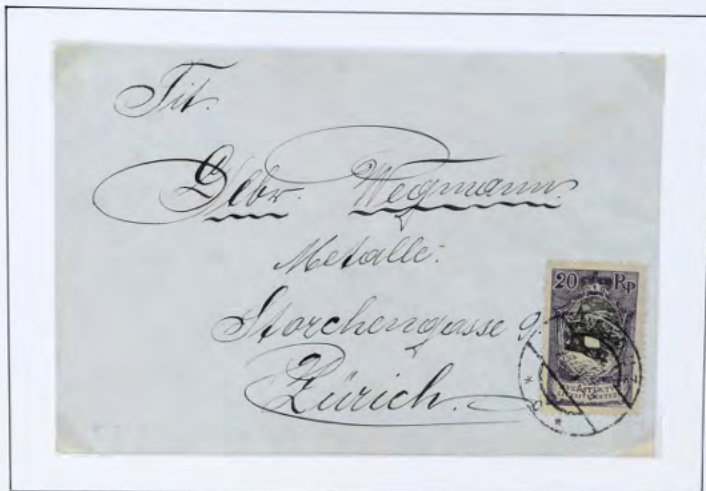 Tit.
Gebr. Wegmann.
Metalle.
Storchengasse 9.
Zürich.
20 Rp